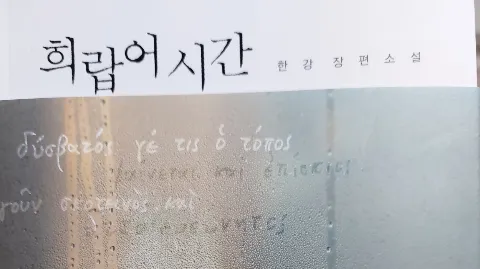 희랍어 시간 한강 장편소설
δύσβατός γέ τις ὁ τόπος
φαίνεται καὶ ἐπίσκιος
γοῦν σκοτεινὸς καὶ